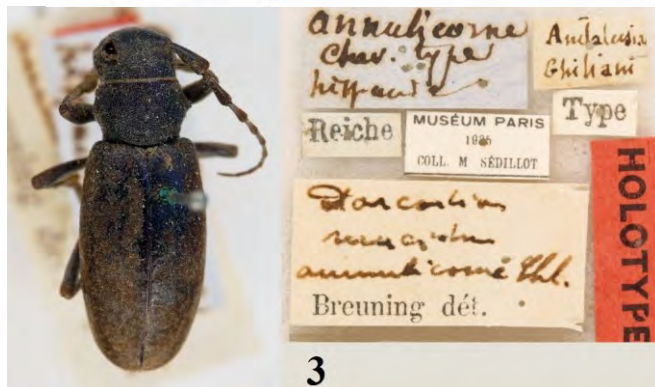 annulicorne
Chev. type
hispania
Andalusia
Ghiliani
Reiche
MUSÉUM PARIS
1935
COLL. M. SÉDILLOT
Type
Dorcadion
annulicorne Chl.
Breuning dét.
HOLOTYPE
3